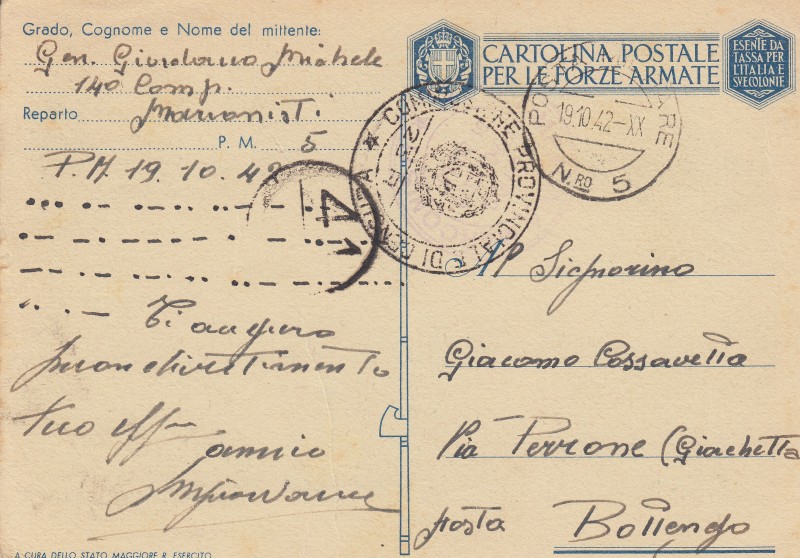 Grado, Cognome e Nome del mittente:
Gen. Giordano Michele
140 Comp.
Reparto Marconisti
P. M. 5
P.M. 19.10.42
Ti auguro
buon divertimento
tuo aff
amico
CARTOLINA POSTALE
PER LE FORZE ARMATE
ESENTE DA
TASSA PER
L'ITALIA E
SUE COLONIE
POSTA MILITARE
19.10.42-XX
N.RO 5
COMMISSIONE PROVINCIALE DI CENSURA
Al Signorino
Giacomo Cossavella
Via Perrone (Giachetta
posta Bollengo
A CURA DELLO STATO MAGGIORE R. ESERCITO